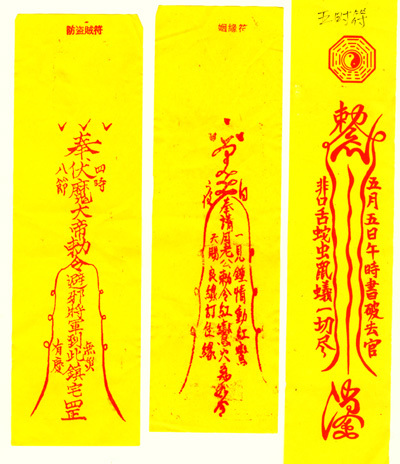 防盗賊符
奉伏魔大帝勅令避邪將軍到此鎮宅罡
四時
八節
無災
有慶
姻緣花
一見鍾情動紅鸞
奉請月老公勅令紅鸞
天賜良緣訂佳緣
五时符
五月五日午時書破去官
非口舌蛇虫鼠蟻一切尽